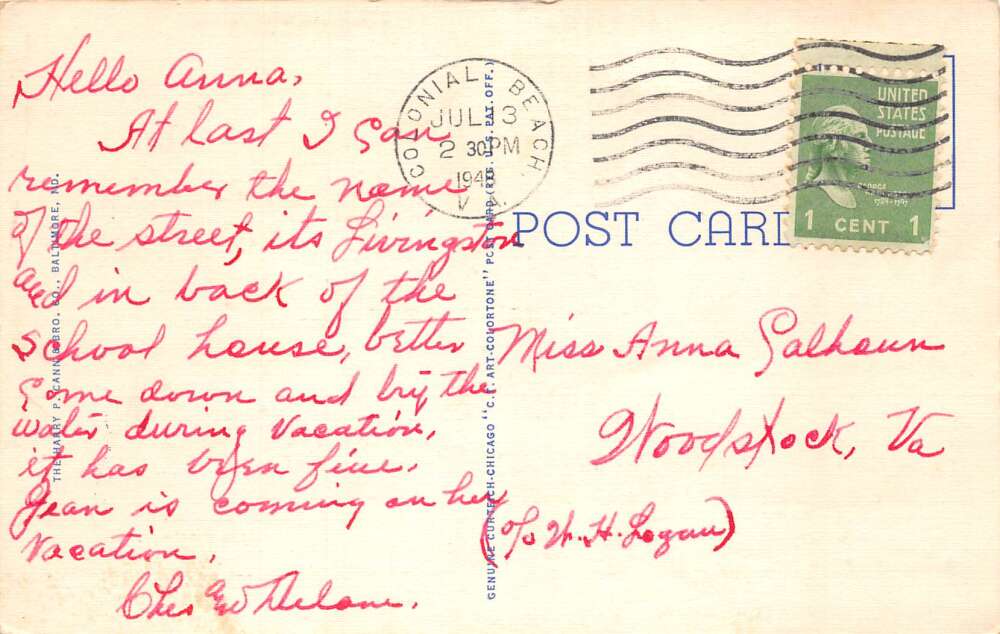 Hello Anna,
At last I can
remember the name
of the street, its Livingston
and in back of the
school house, better
come down and try the
water during vacation,
it has been fine.
Jean is coming on her
vacation.
Ches and Delane.
THE HARRY P. CANN & BRO. CO., BALTIMORE, MD.
GENUINE CURTEICH-CHICAGO "C.T. ART-COLORTONE" POST CARD (REG. U.S. PAT. OFF.)
COLONIAL BEACH.
JUL 3
2 30 PM
VA.
UNITED
STATES
POSTAGE
GEORGE
1 CENT 1
POST CARD
Miss Anna Calhoun
Woodstock, Va
(c/o W. H. Logan)